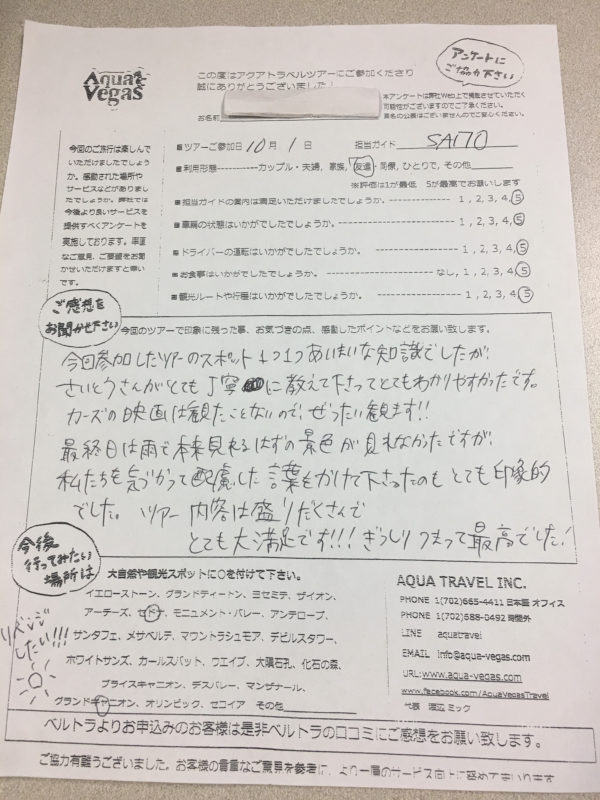 Aqua Vegas
この度はアクアトラベルツアーにご参加くださり
誠にありがとうございました！
アンケートに
ご協力下さい
お名前
本アンケートは弊社Web上で掲載させていただく
可能性がございますのでご了承ください。
実名の公表はございませんのでご安心ください。
今回のご旅行は楽しんで
いただけましたでしょう
か。感動された場所や
サービスなどがありまし
たでしょうか。弊社では
今後より良いサービスを
提供すべくアンケートを
実施しております。率直
なご意見、ご要望をお聞
かせいただけますと幸い
です。
■ツアーご参加日 10月 1日 担当ガイド SAITO
■利用形態-----------カップル・夫婦, 家族, 友達・同僚, ひとりで, その他
※評価は1が最低 5が最高でお願いします
■担当ガイドの案内は満足いただけましたでしょうか。 1, 2, 3, 4, 5
■車輌の状態はいかがでしたでしょうか。 1, 2, 3, 4, 5
■ドライバーの運転はいかがでしたでしょうか。 1, 2, 3, 4, 5
■お食事はいかがでしたでしょうか。 なし, 1, 2, 3, 4, 5
■観光ルートや行程はいかがでしたでしょうか。 1, 2, 3, 4, 5
ご感想を
お聞かせ下さい
今回のツアーで印象に残った事、お気づきの点、感動したポイントなどをお願い致します。
今回参加したツアーのスポット1つ1つあいまいな知識でしたが、
さいとうさんがとても丁寧に教えて下さってとてもわかりやすかったです。
カーズの映画は観たことないので、ぜったい観ます!!
最終日は雨で本来見れるはずの景色が見れなかったですが、
私たちを気づかって配慮した言葉をかけて下さったのもとても印象的
でした。ツアー内容は盛りだくさんで
とても大満足です!!! ぎっしりつまって最高でした!
今後
行ってみたい
場所は
大自然や観光スポットに〇を付けて下さい。
イエローストーン、グランドティートン、ヨセミテ、ザイオン、
アーチーズ、セドナ、モニュメント・バレー、アンテロープ、
サンタフェ、メサベルデ、マウントラシュモア、デビルスタワー、
ホワイトサンズ、カールスバット、ウエイブ、大隕石孔、化石の森、
ブライスキャニオン、デスバレー、マンザナール、
グランドキャニオン、オリンピック、セコイア その他
リベンジ
したい!!!
AQUA TRAVEL INC.
PHONE 1(702)665-4411 日本語 オフィス
PHONE 1(702)688-0492 時間外
LINE aquatravel
EMAIL info@aqua-vegas.com
URL:www.aqua-vegas.com
www.facebook.com/AquaVegasTravel
代表 渡辺 ミック
ベルトラよりお申込みのお客様は是非ベルトラの口コミにご感想をお願い致します。
ご協力有難うございました。お客様の貴重なご意見を参考に、より一層のサービス向上に努めてまいります